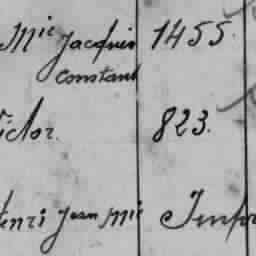 Mie Jacques 1455.
Constant
ictor. 823.
enri Jean Mie Impr